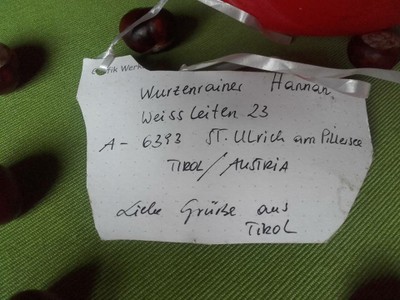 Wurzenrainer Hannah
Weissleiten 23
A- 6393 ST. Ulrich am Pillersee
TIROL/AUSTRIA
Liebe Grüße aus
TIROL